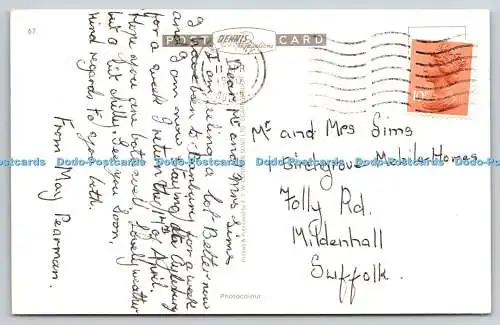 67
POST CARD
DENNIS
Productions
Dear Mr and Mrs Sims
I am feeling a lot Better now
I have been to Banbury for a week
and I am now staying at Aylesbury
for a week I return the 14th of April.
Hope you are both well Lovely weather
but a bit chilly. See you Soon,
Kind regards to you both.
From May Pearman.
Mr and Mrs Sims
Pinengrove Mobile Homes
Folly Rd.
Mildenhall
Suffolk.
Photocolour
Dodo-Postcards Dodo-Postcards Dodo-Postcards Dodo-Postcards Dodo-Postcards